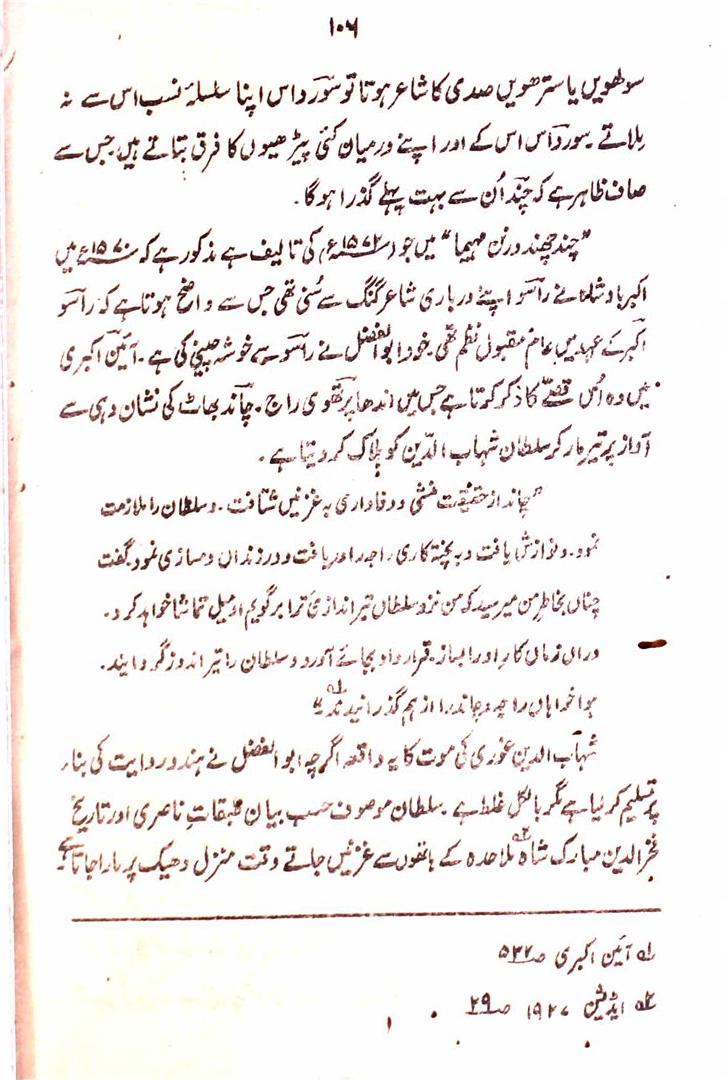 ۱۰۶
سولھویں یا سترھویں صدی کا شاعر ہوتا تو سورداس اپنا سلسلۂ نسب اس سے نہ
ملاتے۔ سورداس اس کے اور اپنے درمیان کئی پیڑھیوں کا فرق بتاتے ہیں جس سے
صاف ظاہر ہے کہ چند اُن سے بہت پہلے گذرا ہوگا۔
"چند چھند ورنن مہیما" میں جو (۱۵۷۲ء) کی تالیف ہے مذکور ہے کہ ۱۵۷۰ء میں
اکبر بادشاہ نے راسو اپنے درباری شاعر گنگ سے سُنی تھی جس سے واضح ہوتا ہے کہ راسو
اکبر کے عہد میں عام مقبول نظم تھی۔ خود ابوالفضل نے راسو سے خوشہ چینی کی ہے۔ آئین اکبری
میں وہ اُس قصے کا ذکر کرتا ہے جس میں اندھا پرتھوی راج۔ چاند بھاٹ کی نشان دہی سے
آواز پر تیر مار کر سلطان شہاب الدین کو ہلاک کر دیتا ہے۔
"چاند از حقیقت منشی و وفاداری بہ غزنیں شتافت۔ و سلطان را ملازمت
نمود۔ و نوازش یافت و بہ پختہ کاری راجہ را دریافت و در زنداں دمسازی نمود۔ گفت
چناں بخاطر من میرسد کہ من نزد سلطان تیر اندازیٔ ترا برگویم او میل تماشا خواہد کرد۔
دراں زماں کار او را بساز۔ قرارداد بجائے آورد و سلطان را تیر اندوز گردانید۔
ہوا خواہاں راجہ و چاند را از ہم گذرانیدند"۱؎
شہاب الدین غوری کی موت کا یہ واقعہ اگرچہ ابوالفضل نے ہندو روایت کی بناء
پر تسلیم کر لیا ہے مگر بالکل غلط ہے۔ سلطان موصوف حسب بیان طبقات ناصری اور تاریخ
فخرالدین مبارک شاہ۲؎ ملاحدہ کے ہاتھوں سے غزنیں جاتے وقت منزل دھیک پر مارا جاتا ہے۔
۱؎ آئین اکبری صہ ۵۳۲
۲؎ ایڈیشن ۱۹۲۷ صہ ۲۹